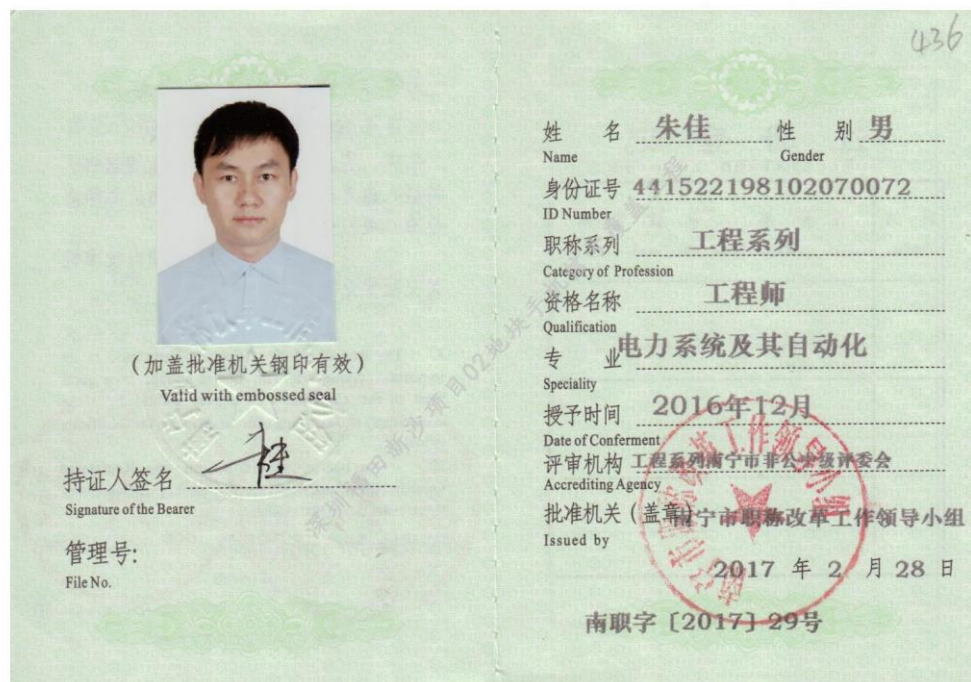 436
(加盖批准机关钢印有效)
Valid with embossed seal
持证人签名
Signature of the Bearer
管理号:
File No.
姓 名 朱佳 性 别 男
Name Gender
身份证号 441522198102070072
ID Number
职称系列 工程系列
Category of Profession
资格名称 工程师
Qualification
专 业 电力系统及其自动化
Speciality
授予时间 2016年12月
Date of Conferment
评审机构 工程系列南宁市非公中级评委会
Accrediting Agency
批准机关(盖章) 南宁市职称改革工作领导小组
Issued by
2017 年 2 月 28 日
南职字〔2017〕29号